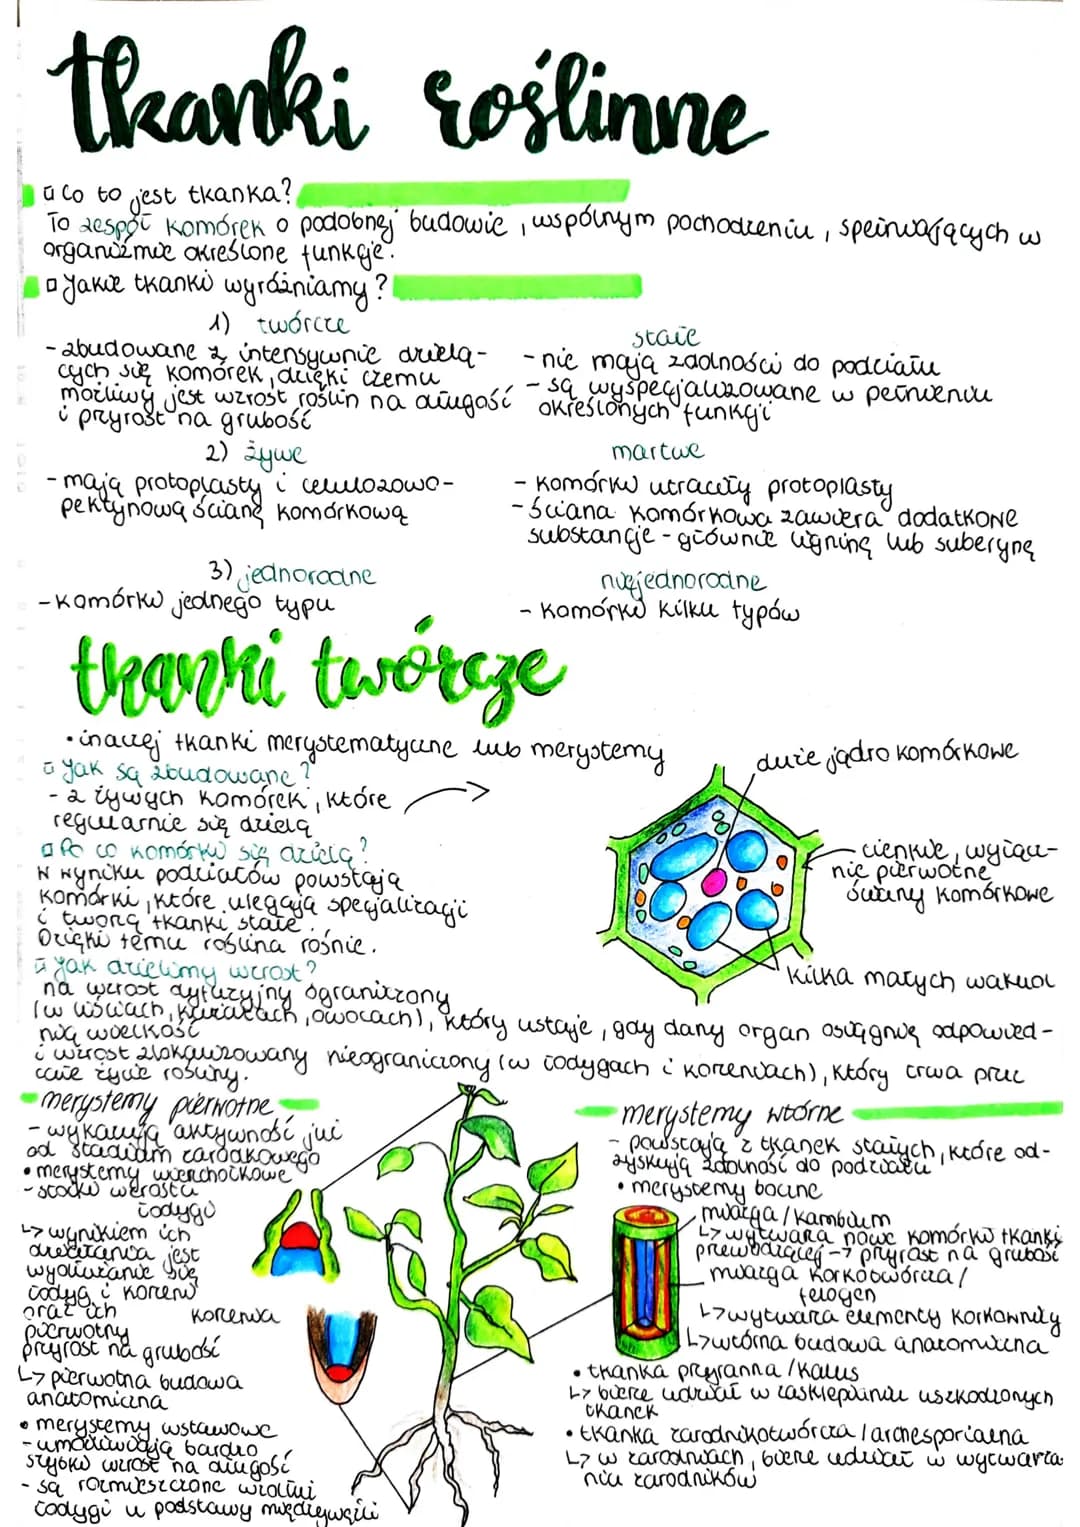 tkanki roślinne
Co to jest tkanka?
To zespół komórek o podobnej budowie, wspólnym pochodzeniu, spełniających w
organizmie określone funkcje.
Jakie tkanki wyróżniamy?
1) twórcze
- zbudowane z intensywnie dzielą-
cych się komórek, dzięki czemu
możliwy jest wzrost roślin na długość
i przyrost na grubość
stałe
- nie mają zdolności do podziału
- są wyspecjalizowane w pełnieniu
określonych funkcji
2) żywe
- mają protoplasty i celulozowo-
pektynową ścianę komórkową
martwe
- komórki utraciły protoplasty
- ściana komórkowa zawiera dodatkowe
substancje - głównie ligninę lub suberynę
3) jednorodne
- komórki jednego typu
niejednorodne
- komórki kilku typów
tkanki twórcze
• inaczej tkanki merystematyczne lub merystemy
Jak są zbudowane?
- z żywych komórek, które
regularnie się dzielą
Po co komórki się dzielą?
W wyniku podziałów powstają
komórki, które ulegają specjalizacji
i tworzą tkanki stałe.
Dzięki temu roślina rośnie.
duże jądro komórkowe
cienkie, wyłącz-
nie pierwotne
ściany komórkowe
kilka małych wakuol
Jak dzielimy wzrost?
na wzrost dyfuzyjny ograniczony
(w liściach, kwiatach, owocach), który ustaje, gdy dany organ osiągnie odpowied-
nią wielkość
i wzrost zlokalizowany nieograniczony (w łodygach i korzeniach), który trwa przez
całe życie rośliny.
merystemy pierwotne
- wykazują aktywność już
od stadium zarodkowego
• merystemy wierzchołkowe
- stożki wzrostu
łodygi
↳ wynikiem ich
działania jest
wydłużanie się
łodyg i korzeni
oraz ich
pierwotny
przyrost na grubość
korzenia
↳ pierwotna budowa
anatomiczna
• merystemy wstawowe
- umożliwiają bardzo
szybki wzrost na długość
- są rozmieszczone wzdłuż
łodygi u podstawy międzywęźli
merystemy wtórne
- powstają z tkanek stałych, które od-
zyskują zdolność do podziału
• merystemy boczne
miazga/kambium
↳ wytwarza nowe komórki tkanki
przewodzącej → przyrost na grubość
miazga korkotwórcza/
felogen
↳ wytwarza elementy korkowicy
↳ wtórna budowa anatomiczna
• tkanka przyranna/kalus
↳ bierze udział w zasklepianiu uszkodzonych
tkanek
• tkanka zarodnikotwórcza/archesporialna
↳ w zarodniach, bierze udział w wytwarza-
niu zarodników